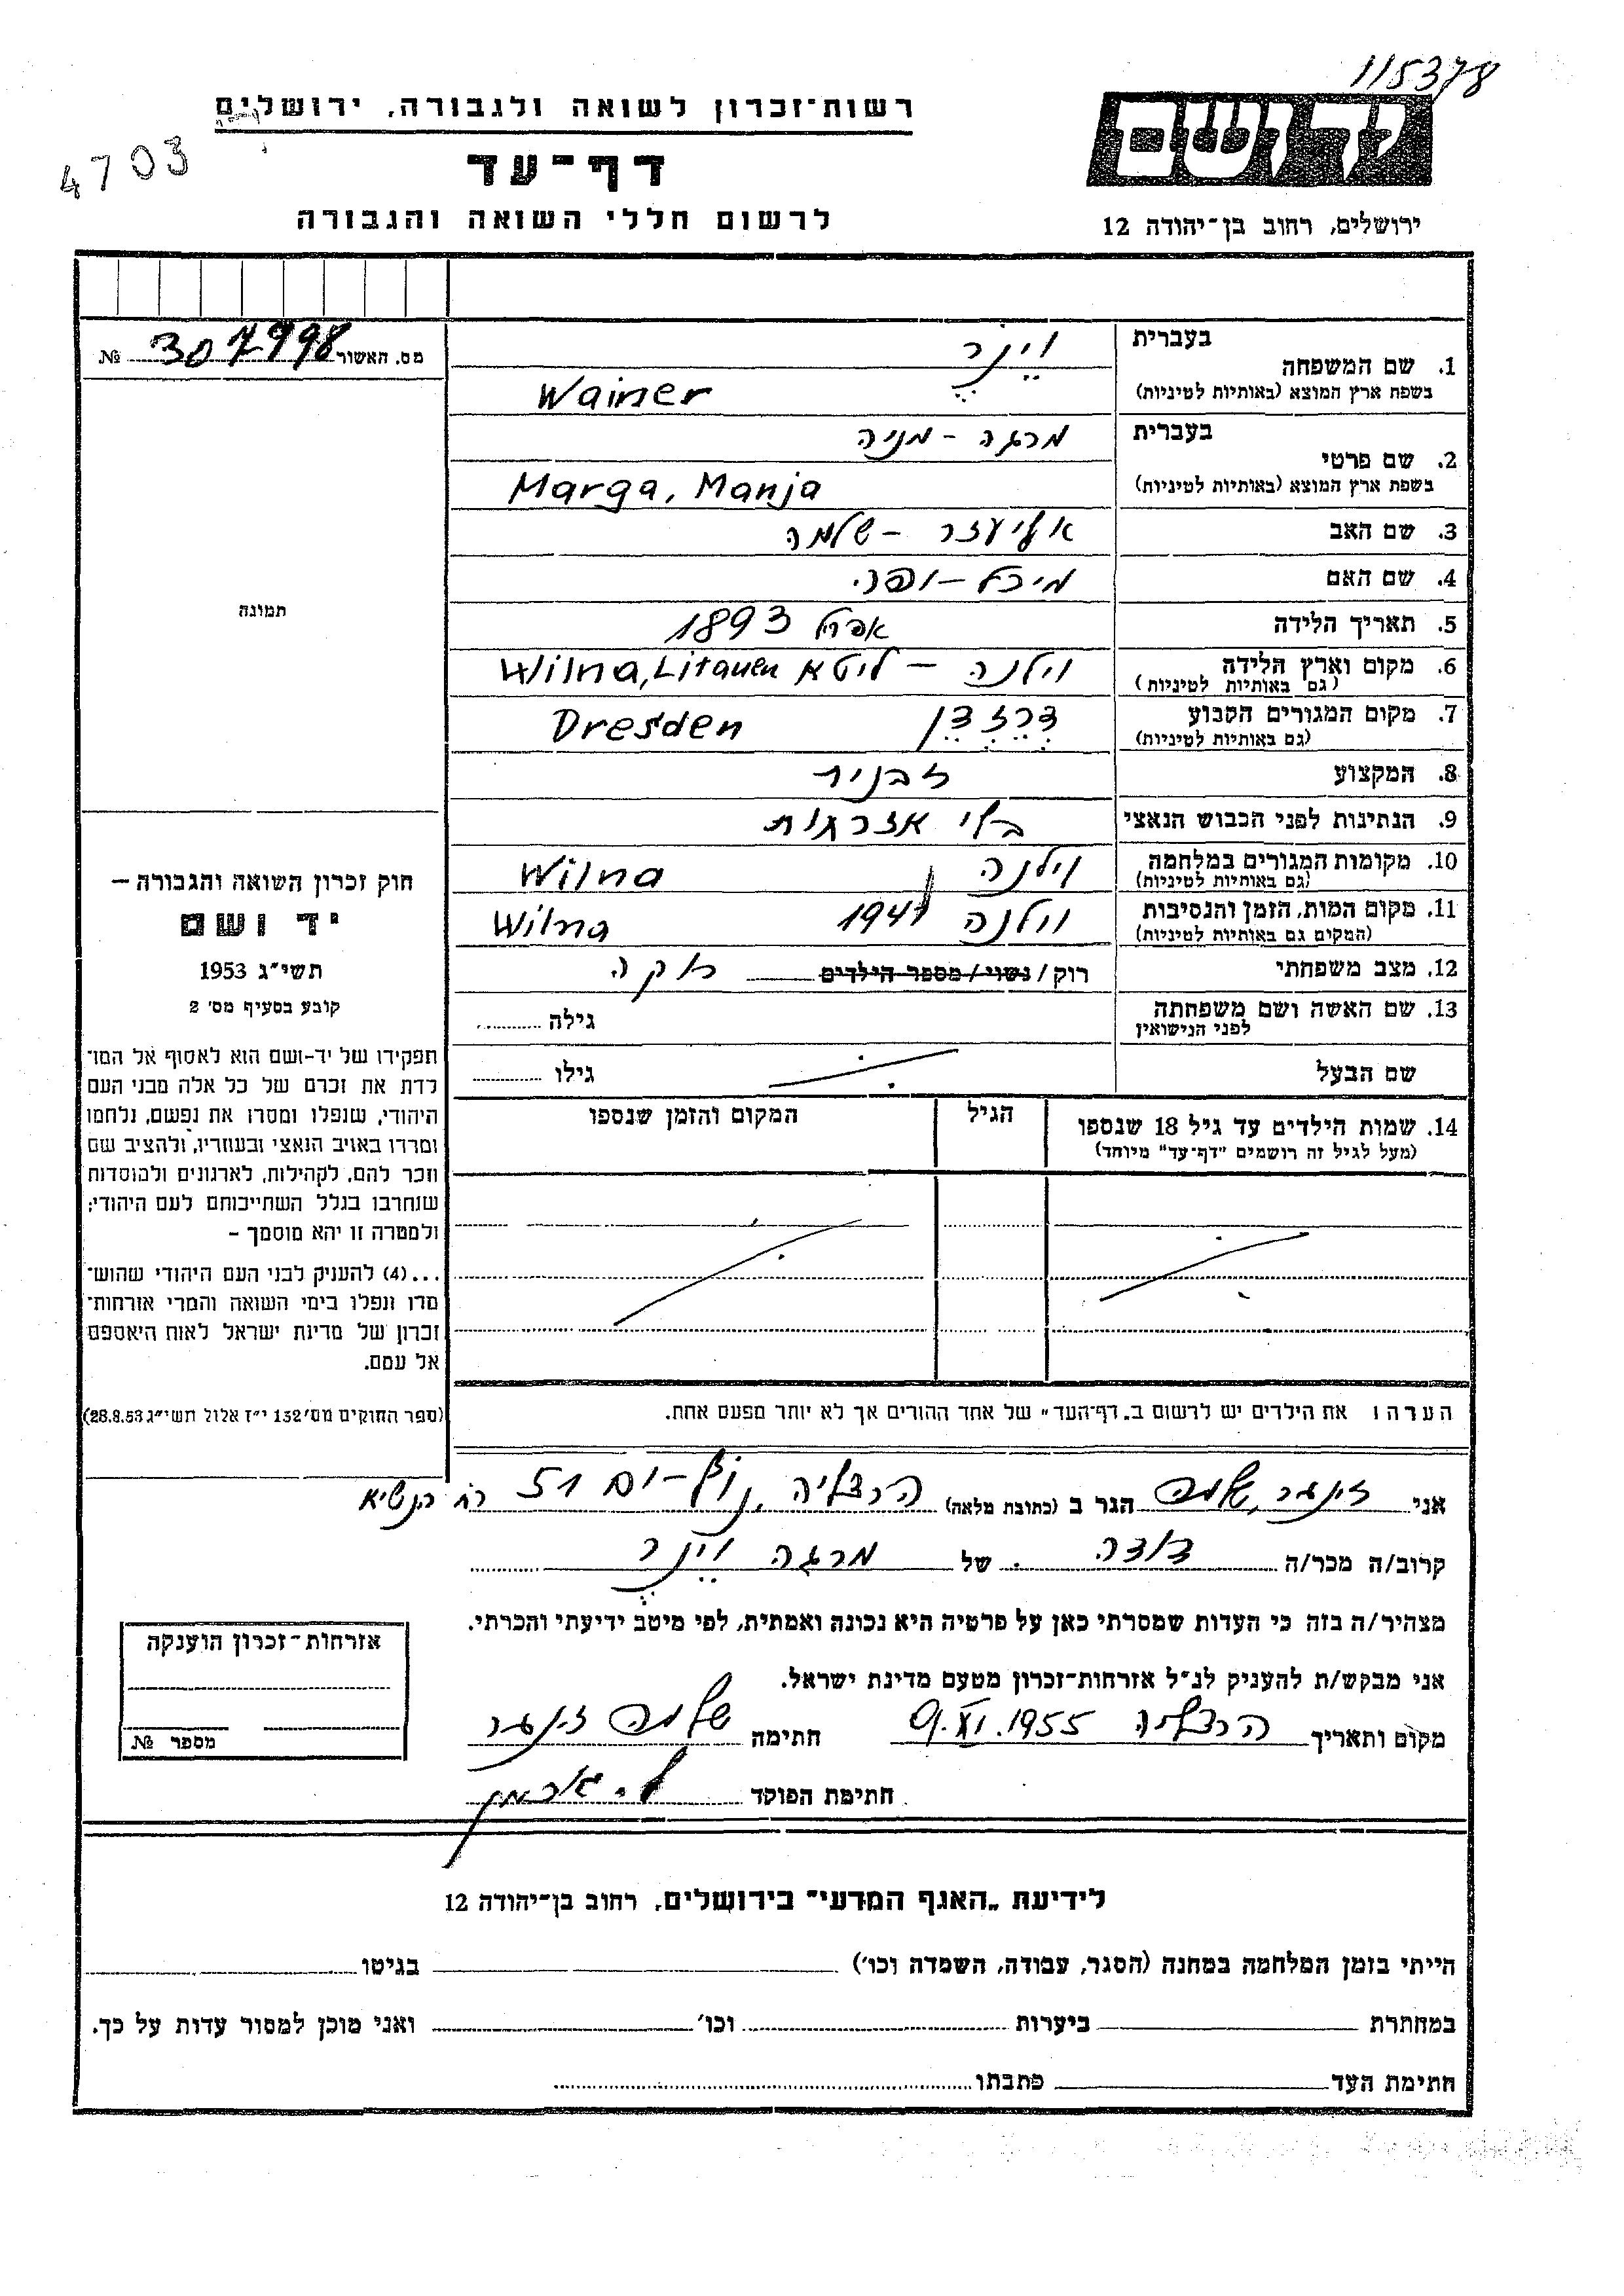 115378
4703
יד ושם
רשות-זכרון לשואה ולגבורה, ירושלים
דף-עד
לרשום חללי השואה והגבורה
ירושלים, רחוב בן-יהודה 12
מס. האשור 307998 №
תמונה
חוק זכרון השואה והגבורה –
יד ושם
תשי״ג 1953
קובע בסעיף מס׳ 2
תפקידו של יד-ושם הוא לאסוף אל המו־
לדת את זכרם של כל אלה מבני העם
היהודי, שנפלו ומסרו את נפשם, נלחמו
ומרדו באויב הנאצי ובעוזריו, ולהציב שם
וזכר להם, לקהילות, לארגונים ולמוסדות
שנחרבו בגלל השתייכותם לעם היהודי;
ולמטרה זו יהא מוסמך –
...(4) להעניק לבני העם היהודי שהוש־
מדו ונפלו בימי השואה והמרי אזרחות־
זכרון של מדינת ישראל לאות היאספם
אל עמם.
(ספר החוקים מס׳ 132 י״ז אלול תשי״ג 28.8.53)
בעברית וַיְנֶר
1. שם המשפחה
בשפת ארץ המוצא (באותיות לטיניות) Wainer
בעברית מרגה - מניה
2. שם פרטי
בשפת ארץ המוצא (באותיות לטיניות) Marga, Manja
3. שם האב אליעזר - שלמה
4. שם האם
5. תאריך הלידה אפריל 1893
6. מקום וארץ הלידה וילנה - ליטא Wilna, Litauen
(גם באותיות לטיניות)
7. מקום המגורים הקבוע דרזדן Dresden
(גם באותיות לטיניות)
8. המקצוע זבנית
9. הנתינות לפני הכבוש הנאצי בלי אזרחות
10. מקומות המגורים במלחמה וילנה Wilna
(גם באותיות לטיניות)
11. מקום המות, הזמן והנסיבות וילנה 1941 Wilna
(המקום גם באותיות לטיניות)
12. מצב משפחתי רוק / נשוי / מספר הילדים רוקה
13. שם האשה ושם משפחתה גילה
לפני הנישואין
שם הבעל גילו
14. שמות הילדים עד גיל 18 שנספו הגיל המקום והזמן שנספו
(מעל לגיל זה רושמים "דף-עד" מיוחד)
הערה: את הילדים יש לרשום ב„דף-העד" של אחד ההורים אך לא יותר מפעם אחת.
אני זינגר שלמה הגר ב (כתובת מלאה) הרצליה, נוף-ים 51 רח הנשיא
קרוב/ה מכר/ה דודה של מרגה וַיְנֶר
מצהיר/ה בזה כי העדות שמסרתי כאן על פרטיה היא נכונה ואמתית, לפי מיטב ידיעתי והכרתי.
אני מבקש/ת להעניק לנ״ל אזרחות-זכרון מטעם מדינת ישראל.
מקום ותאריך הרצליה 9.XI.1955 חתימה שלמה זינגר
חתימת הפוקד
אזרחות-זכרון הוענקה
מספר №
לידיעת „האגף המדעי" בירושלים, רחוב בן-יהודה 12
הייתי בזמן המלחמה במחנה (הסגר, עבודה, השמדה וכו׳) בגיטו
במחתרת ביערות וכו׳ ואני מוכן למסור עדות על כך.
חתימת העד כתבתו